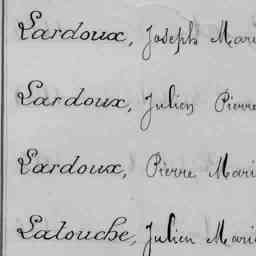 Lardoux, Joseph Mari
Lardoux, Julien Pierre
Lardoux, Pierre Mari
Latouche, Julien Mari